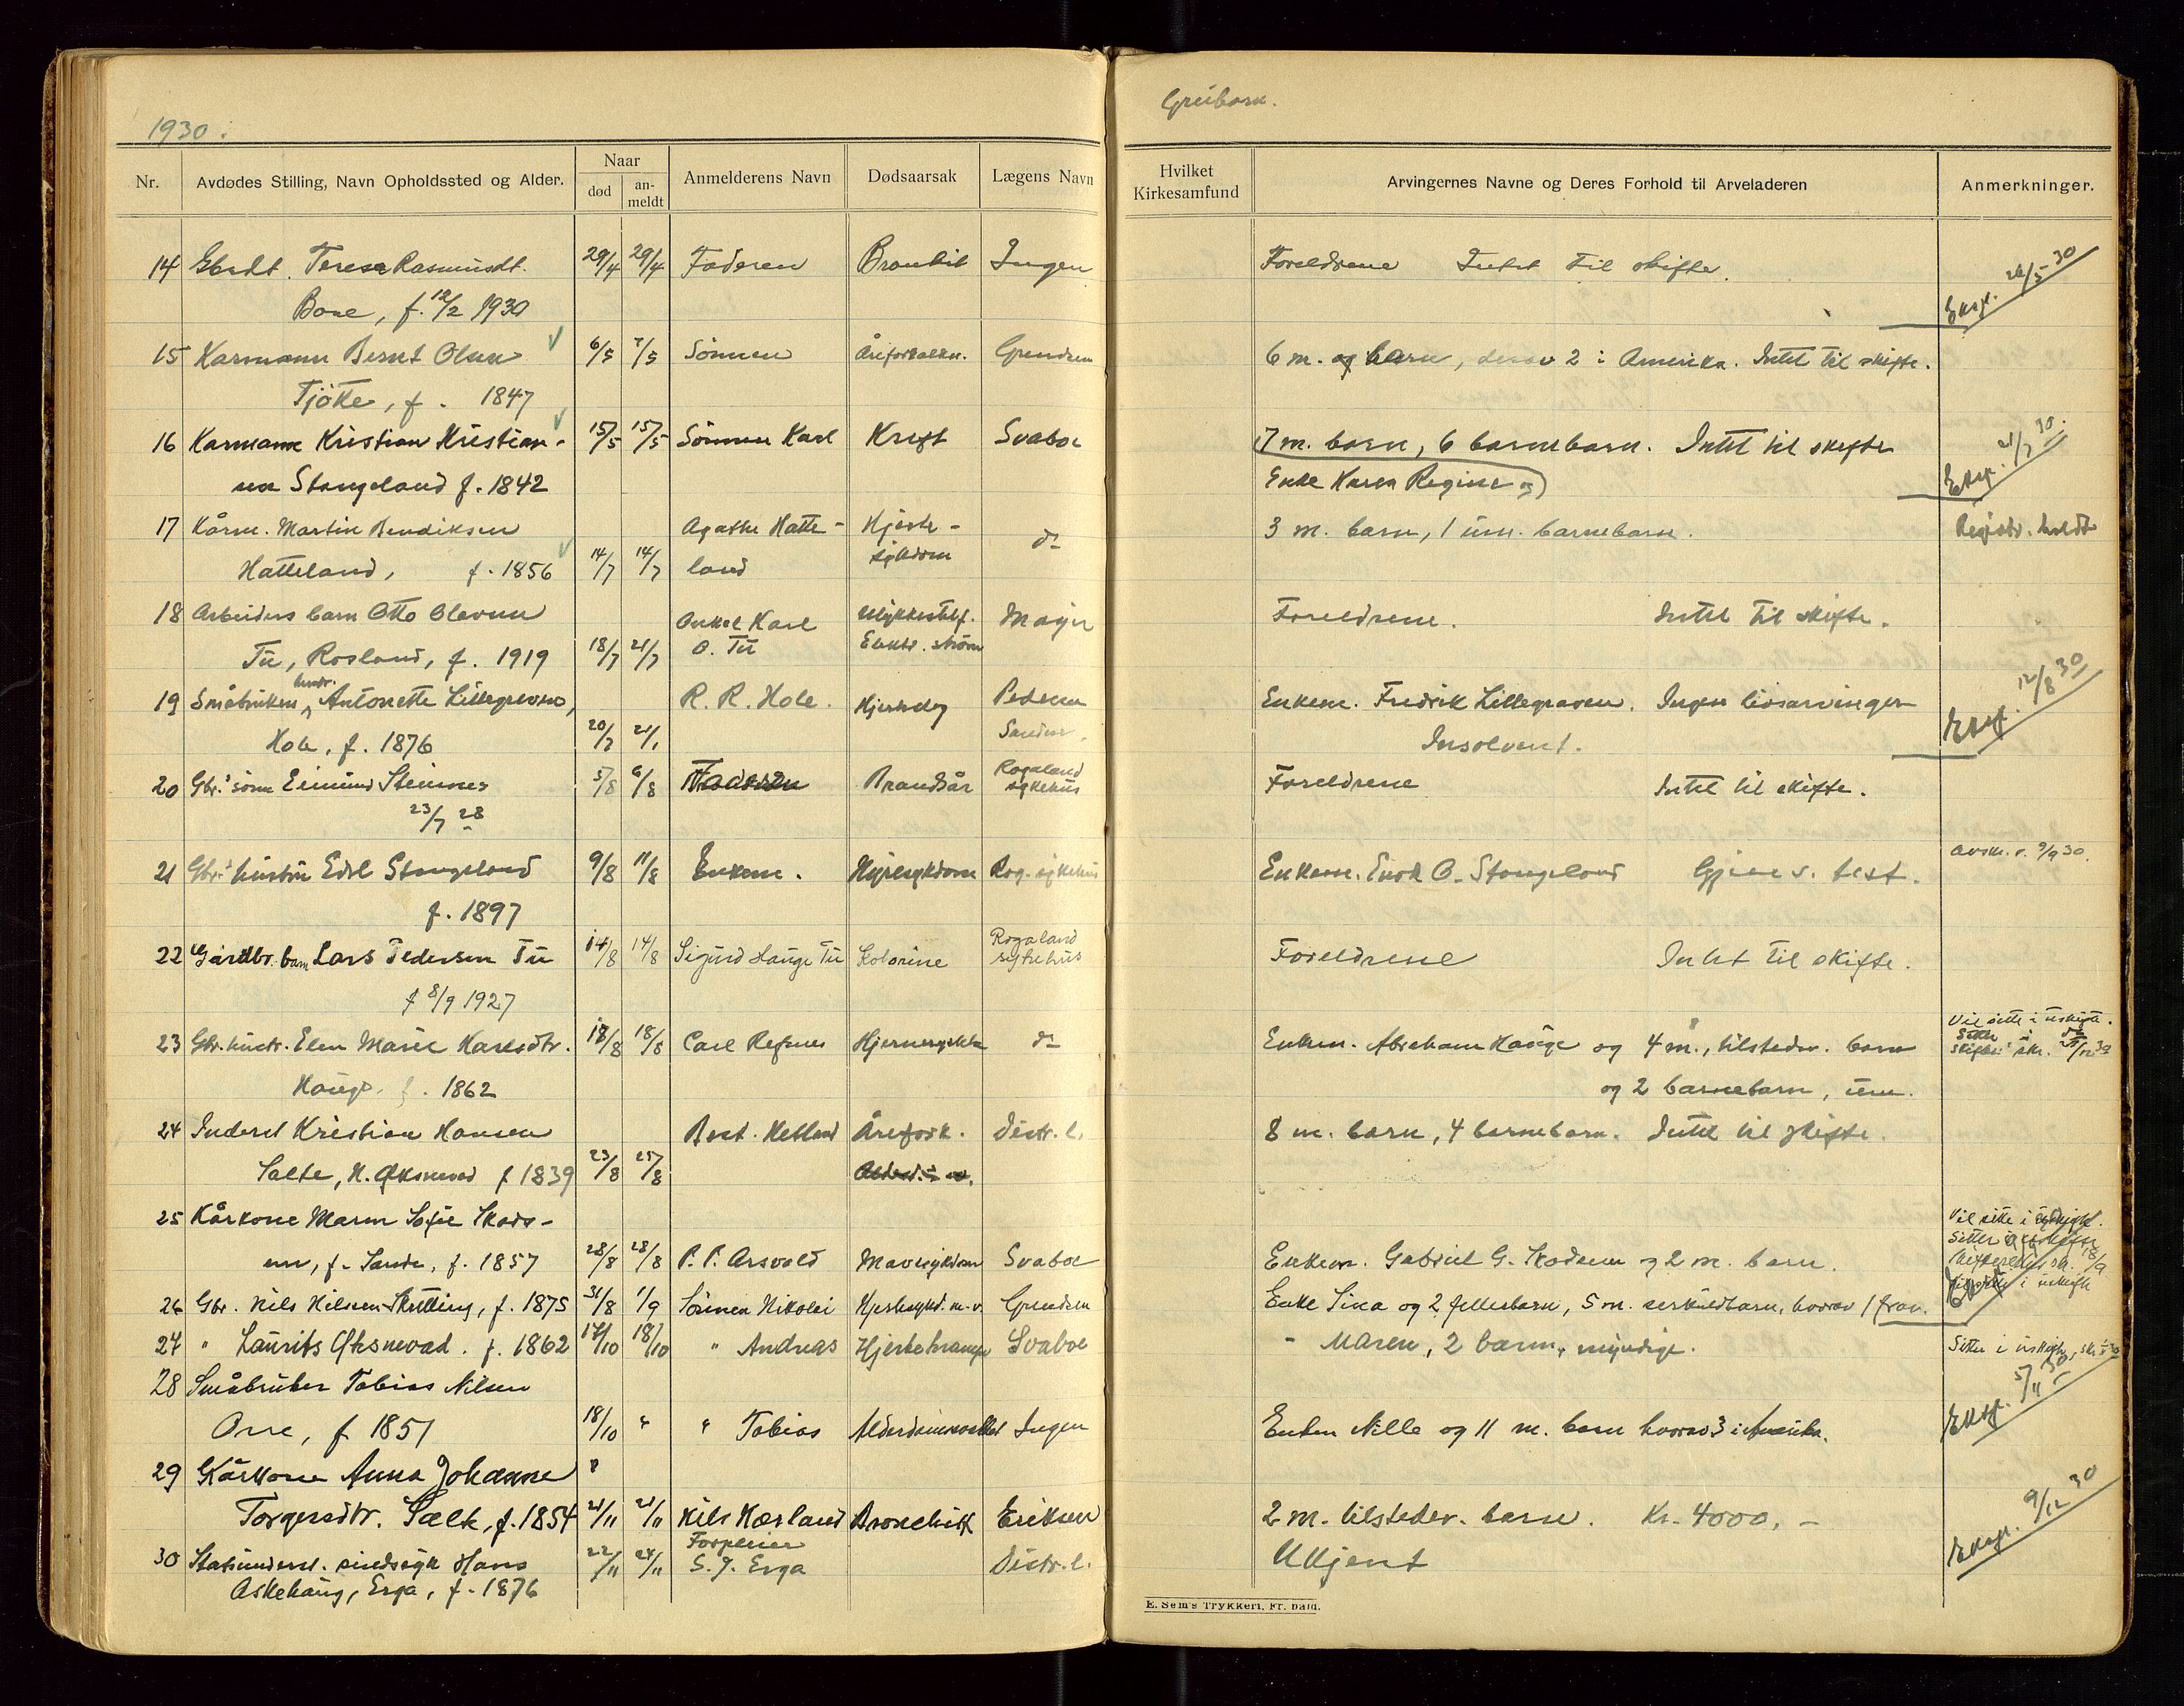 1930.
Nr.
Avdødes Stilling, Navn Opholdssted og Alder.
Naar
død
an-
meldt
Anmelderens Navn
Dødsaarsak
Lægens Navn
Hvilket
Kirkesamfund
Arvingernes Navne og Deres Forhold til Arveladeren
Anmerkninger.
14 Gbrdt. Terese Rasmusdt. 29/4 29/4 Faderen Bronkit Ingen Foreldrene Intet til skifte. Eksp. 26/5 30
Bore, f. 12/2 1930
15 Karmann Bernt Olsen 6/5 7/5 Sønnen Åreforkalkn. 6 m. og barn, derav 2 i Amerika. Intet til skifte.
Tjøtte, f. 1847
16 Karmann Kristian Kristian- 15/5 15/5 Sønnen Karl Kreft Svaboe 7 m. barn, 6 barnebarn. Intet til skifte Eksp. 21/7 30.
sen Stangeland f. 1842 Enke Karen Regine og
17 Kårm. Martin Bendiksen Agathe Hatte- Hjerte- 3 m. barn, 1 um. barnebarn. Registr. holdt
Hatteland, f. 1856 14/7 14/7 land sykdom do
18 Arbeiders barn Otto Olevun Onkel Karl Ulykkestilf. Foreldrene. Intet til skifte.
Tu, Rosland, f. 1919 18/7 21/7 O. Tu Elektr. strøm
19 Småbrukers hustr. Antonette Lillegraven, R. R. Hole. Hjerteslag Enkem. Fredrik Lillegraven. Ingen livsarvinger Eksp. 12/8 30
Hole, f. 1876 20/7 Insolvent.
20 Gbr.s sønn Eimund Steinnes 5/8 6/8 Faderen Brandsår Rogaland sykehus Foreldrene Intet til skifte.
23/7 28
21 Gbr.s hustru Edel Stangeland 9/8 11/8 Enkem. Rog. sykehus Enkem. Enok O. Stangeland Gjens. test. Avskr. 9/9 30.
f. 1897
22 Gårdbr. barn Lars Pedersen Tu 14/8 14/8 Sigurd Hauge Tu Kolorine Rogaland sykehus Foreldrene Intet til skifte.
f 8/9 1927
23 Gbr. hustr. Elen Marie Karlsdtr. 18/8 18/8 Carl Refsnes do Enkem. Abraham Hauge og 4 m., tilstedev. barn Vil sitte i uskifte.
Hauge. f. 1862 og 2 barnebarn, um.
24 Inderst Kristian Hansen Bert. Hetland Årefork. Distr. l. 8 m. barn, 4 barnebarn. Intet til skifte.
Salte, N. Øksnevad f 1839 23/8 25/8
25 Kårkone Maren Sofie Skads- Vil sitte i uskift.
em, f. Sande, f. 1857 28/8 28/8 P. P. Årsvold Mavesykdom Svaboe Enkem. Gabriel G. Skadsem og 2 m. barn.
26 Gbr. Nils Nilsen Skretting, f. 1875 31/8 1/9 Sønnen Nikolai Hjertesykd. m. v. Enke Sina og 2 fellesbarn, 5 m. serkuldbarn, hvorav 1 frav.
27 " Laurits Øksnevad. f. 1862 17/10 18/10 " Andreas Hjertekrampe Svaboe - Maren, 2 barn, myndige. Sitter i uskifte
28 Småbruker Tobias Nilsen Eksp. 5/11 30
Orre, f. 1851 18/10 " " Tobias Alderdomssvakhet Ingen Enken Nille og 11 m. barn hvorav 3 i Amerika.
29 Kårkone Anna Johanne
Torgersdtr. Salte, f. 1854 21/11 21/11 Nils Nærland Bronchitt Eriksen 2 m. tilstedev. barn. Kr. 4000,- Eksp. 9/12 30
30 Statsunderst. sindssyk Hans 22/11 24/11 Forpleier S. J. Erga Distr. l. Ukjent
Askehaug, Erga, f. 1876
E. Sem's Trykkeri, Fr.hald.